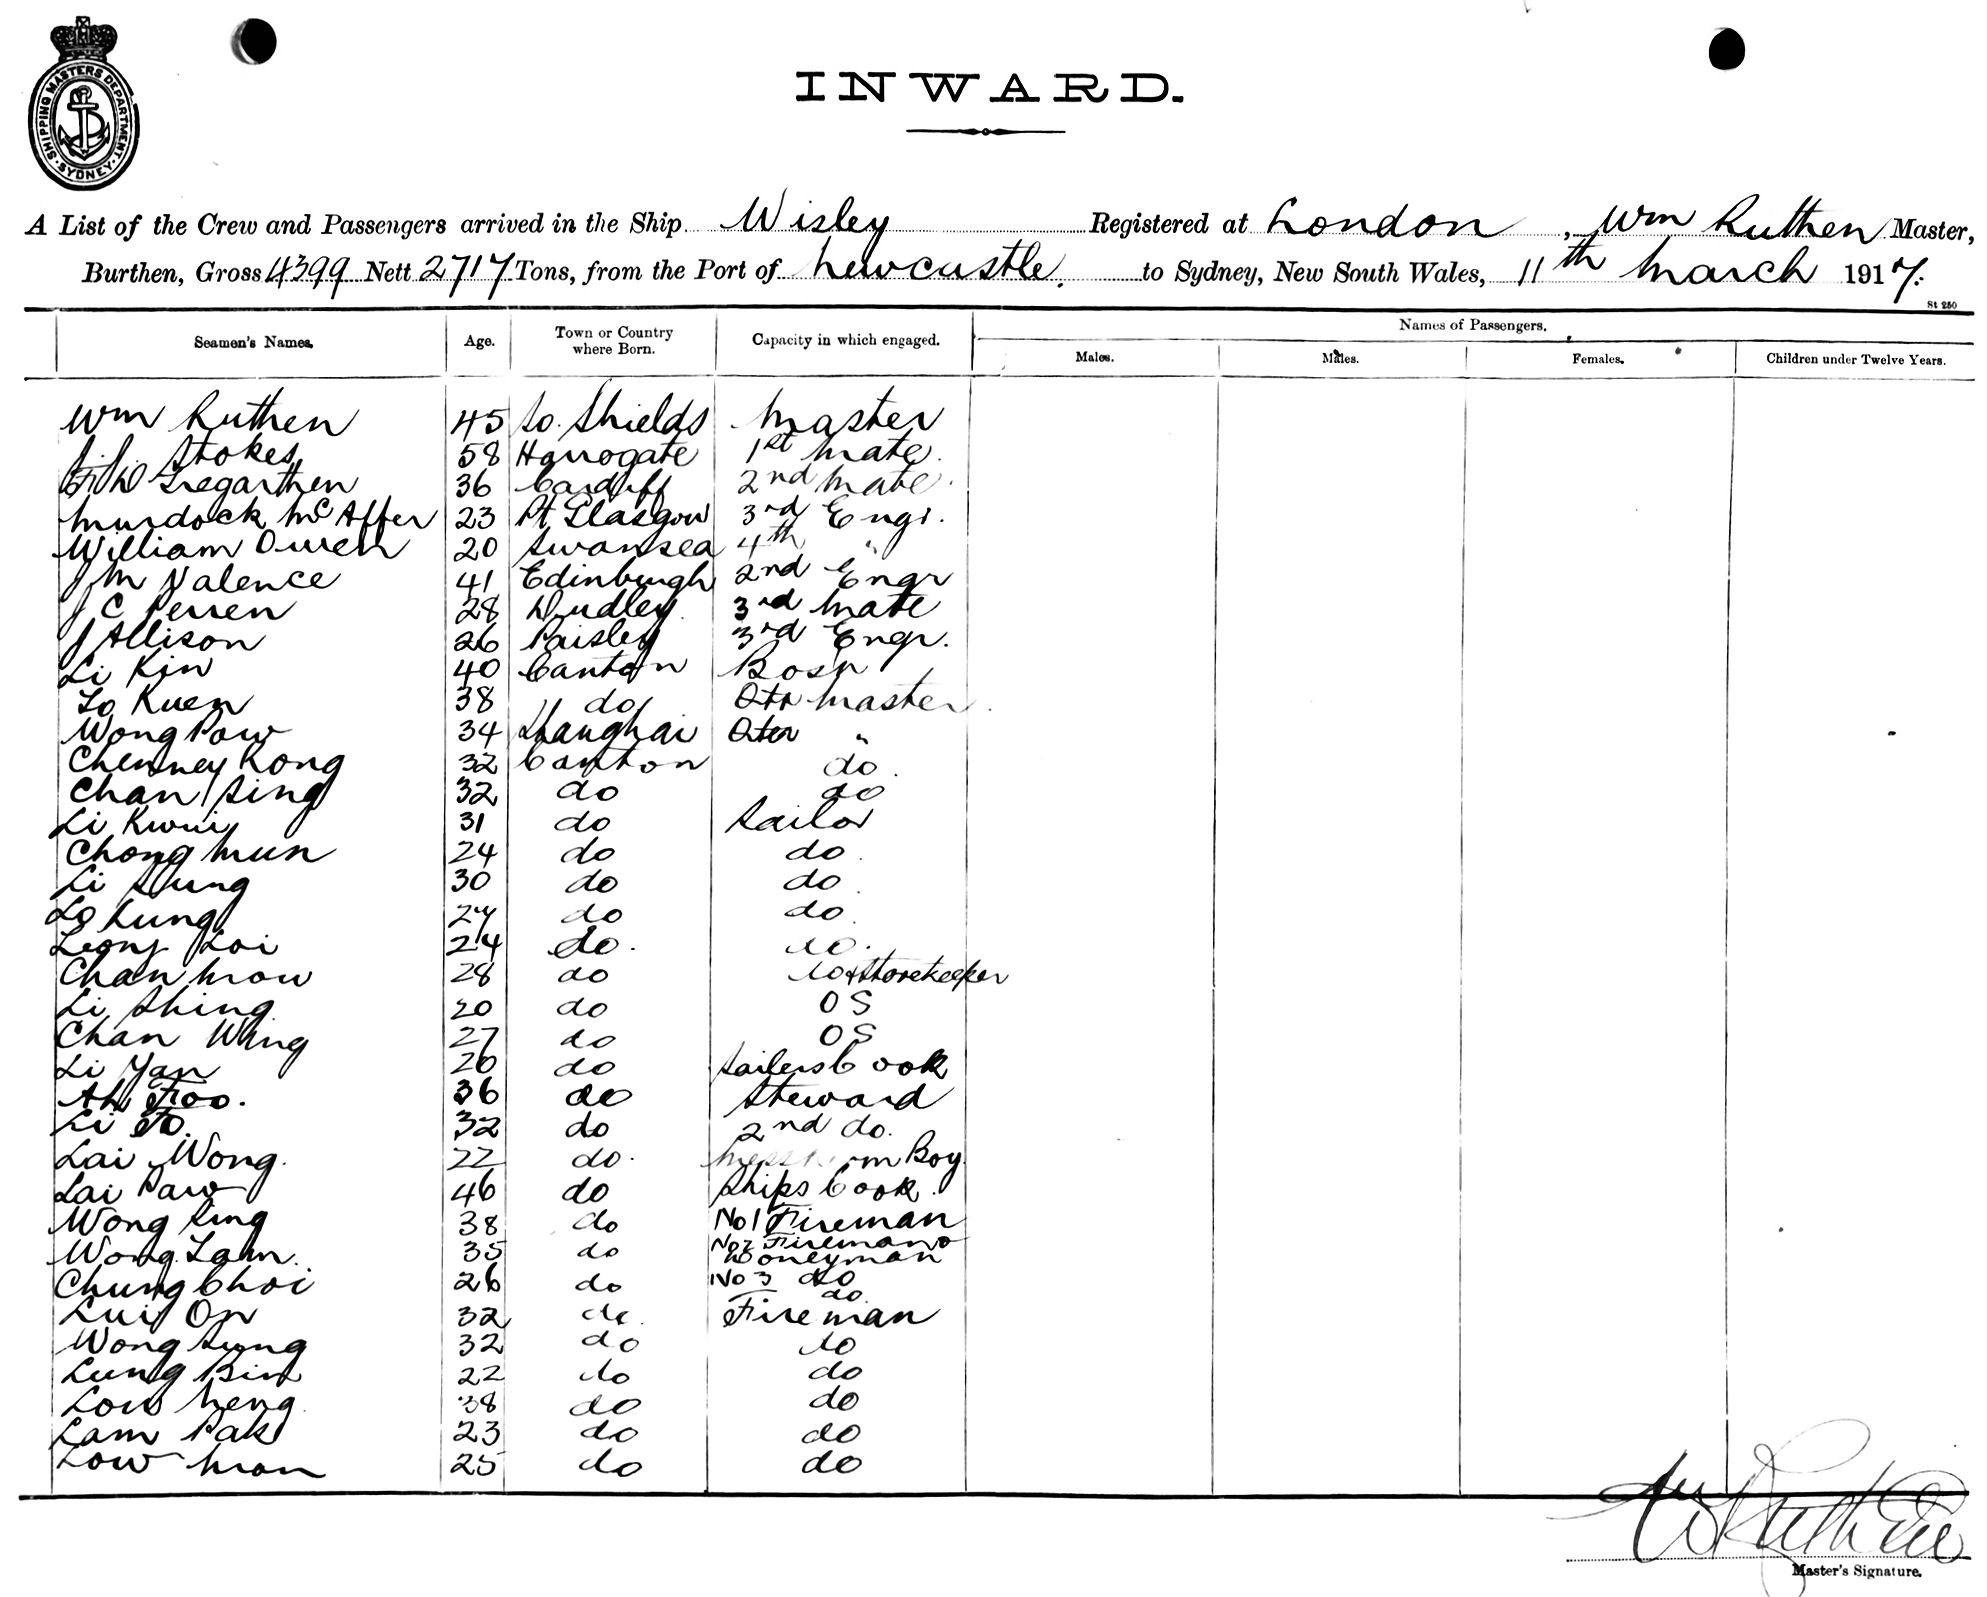 SHIPPING MASTERS DEPARTMENT. SYDNEY
INWARD.
A List of the Crew and Passengers arrived in the Ship Wisley Registered at London, Wm Ruthen Master,
Burthen, Gross 4399 Nett 2717 Tons, from the Port of Newcastle. to Sydney, New South Wales, 11th March 1917.
St 250
Seamen's Names. Age. Town or Country where Born. Capacity in which engaged. Names of Passengers.
Males. Males. Females. Children under Twelve Years.
Wm Ruthen 45 So. Shields Master
Stokes 58 Harrogate 1st Mate.
Tregarthen 36 Cardiff 2nd Mate.
Murdock McAffer 23 Pt Glasgow 3rd Engr.
William Owen 20 Swansea 4th "
J M Valence 41 Edinburgh 2nd Engr
J C Perren 28 Dudley 3rd Mate
J Allison 26 Paisley 3rd Engr.
Li Kin 40 Canton Bosn
Lo Kuen 38 do Qtr Master
Wong Pow 34 Shanghai Qter "
Chenney Kong 32 Canton do.
Chan Sing 32 do do
Li Kwui 31 do Sailor
Chong Mun 24 do do.
Li Sung 30 do do.
Lo Lung 27 do do.
Leong Loi 24 do. do.
Chan Mow 28 do do & Storekeeper
Li Shing 20 do OS
Chan Wing 27 do OS
Li Yan 26 do Sailors Cook
Ah Foo. 36 do Steward
Li To. 32 do 2nd do.
Lai Wong. 22 do. Messroom Boy.
Lai Paw 46 do Ships Cook.
Wong Sing 38 do No 1 Fireman
Wong Lam. 35 do No 2 Fireman & Doneyman
Chung Choi 26 do No 3 do do.
Lui On 32 do. Fireman
Wong Sung 32 do do
Lung Bin 22 do do
Low Neng 38 do do
Lam Pak 23 do do
Low Mon 25 do do
Wm Ruthen
Master's Signature.